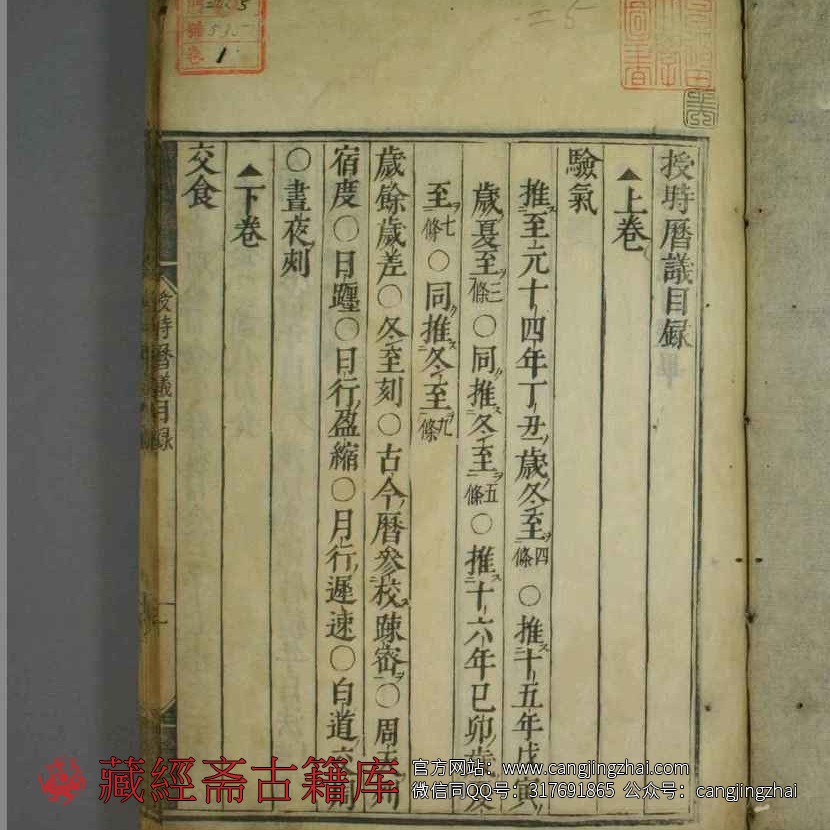 授時曆議目録
▲上卷
驗氣
推至元十四年丁丑歲冬至四條○推十五年戊寅
歲夏至三條○同推冬至五條○推十六年已卯歲冬
至七條○同推冬至九條
歲餘歲差○冬至刻○古今曆參校疎密○周天列
宿度○日躔○日行盈縮○月行遲速○白道交周
○晝夜刻
▲下卷
交食
授時曆議目録
一
卷
1
535
二5
藏經斋古籍库
官方网站：www.cangjingzhai.com
微信同QQ号：317691865 公众号：cangjingzhai